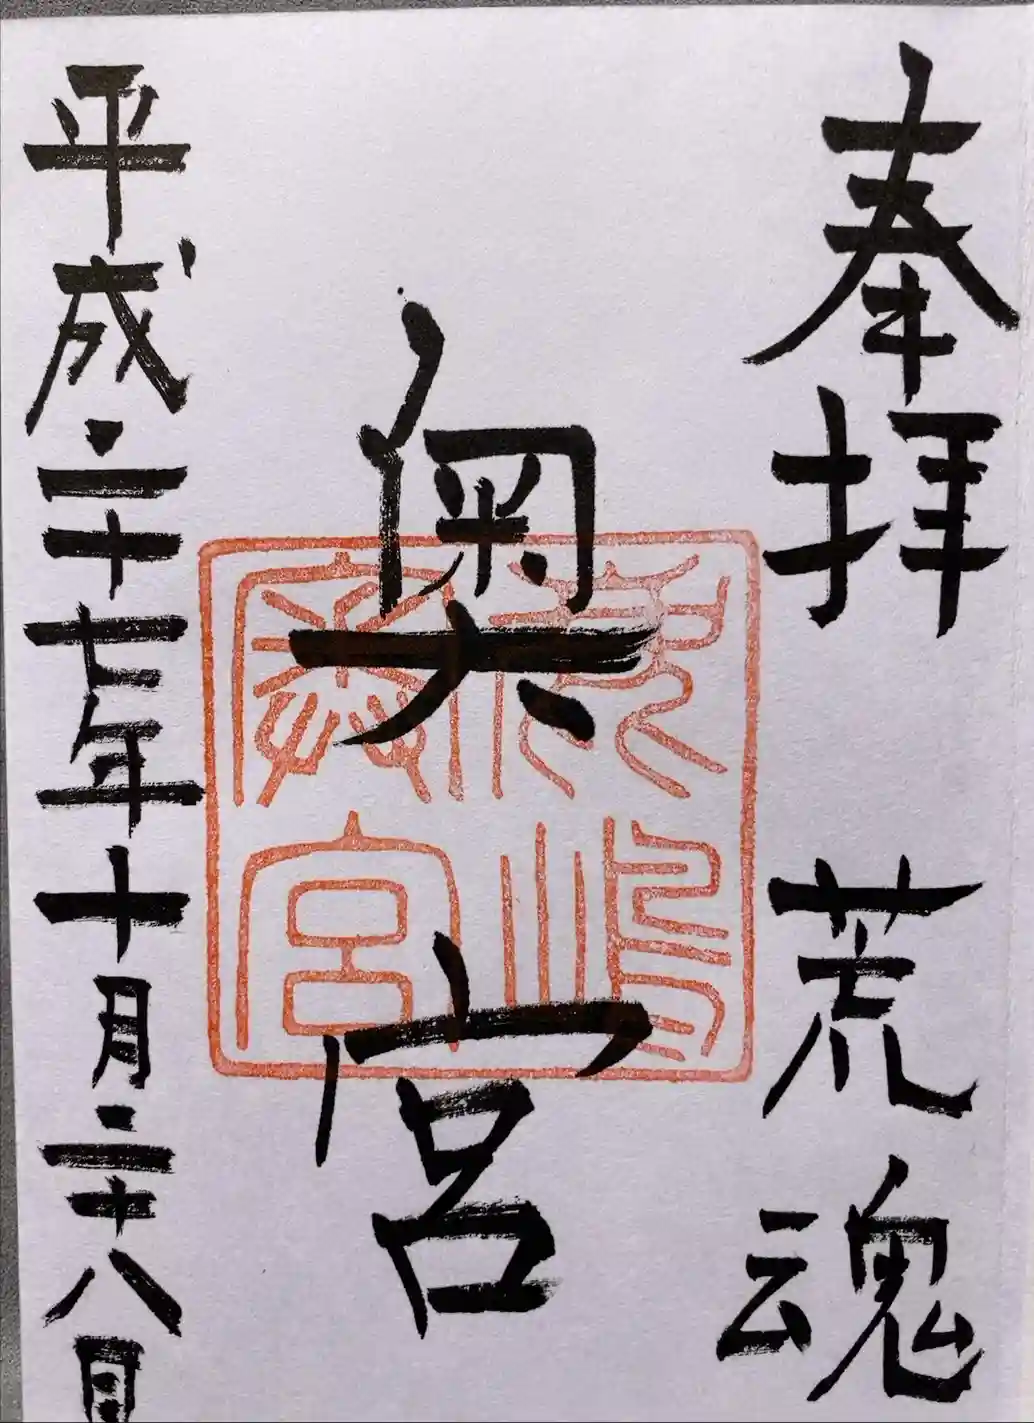 奉拝 荒魂
奥宮
平成二十七年十月二十八日
奥宮